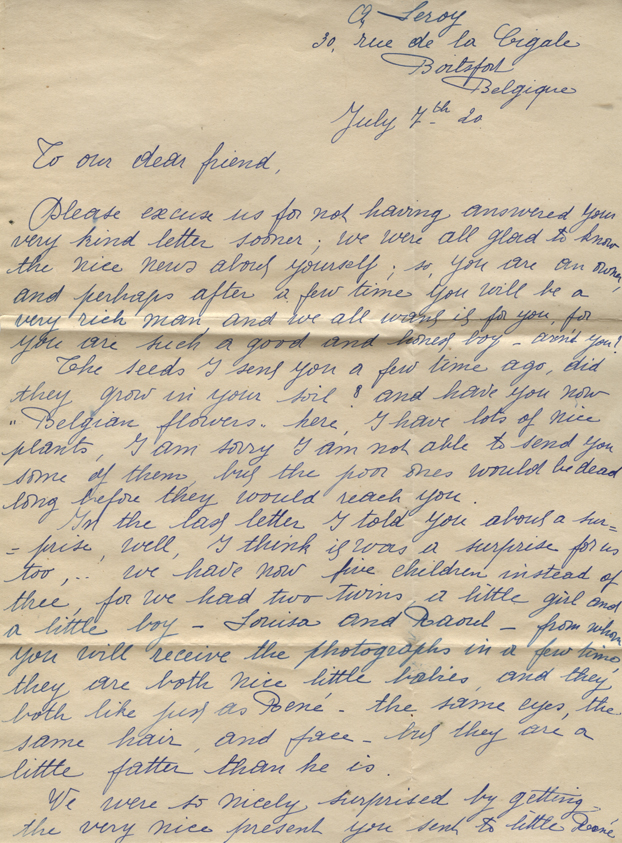 A. Leroy
30, rue de la Cigale
Boitsfort
Belgique
July 7th 20.
To our dear friend,
Please excuse us for not having answered your
very kind letter sooner; we were all glad to know
the nice news about yourself; so, you are an owner,
and perhaps after a few time you will be a
very rich man, and we all want it for you, for
you are such a good and honest boy - ain't you?
The seeds I sent you a few time ago, did
they grow in your soil? and have you now
"Belgian flowers.. here, I have lots of nice
plants, I am sorry I am not able to send you
some of them, but the poor ones would be dead
long before they would reach you.
In the last letter I told you about a sur-
- prise, well, I think it was a surprise for us
too,... we have now five children instead of
thee, for we had two twins, a little girl and
a little boy - Louisa and Raoul - from whom
you will receive the photographs in a few time,
they are both nice little babies, and they
both like just as René - the same eyes, the
same hair, and face - but they are a
little fatter than he is.
We were so nicely surprised by getting
the very nice present you sent to little René